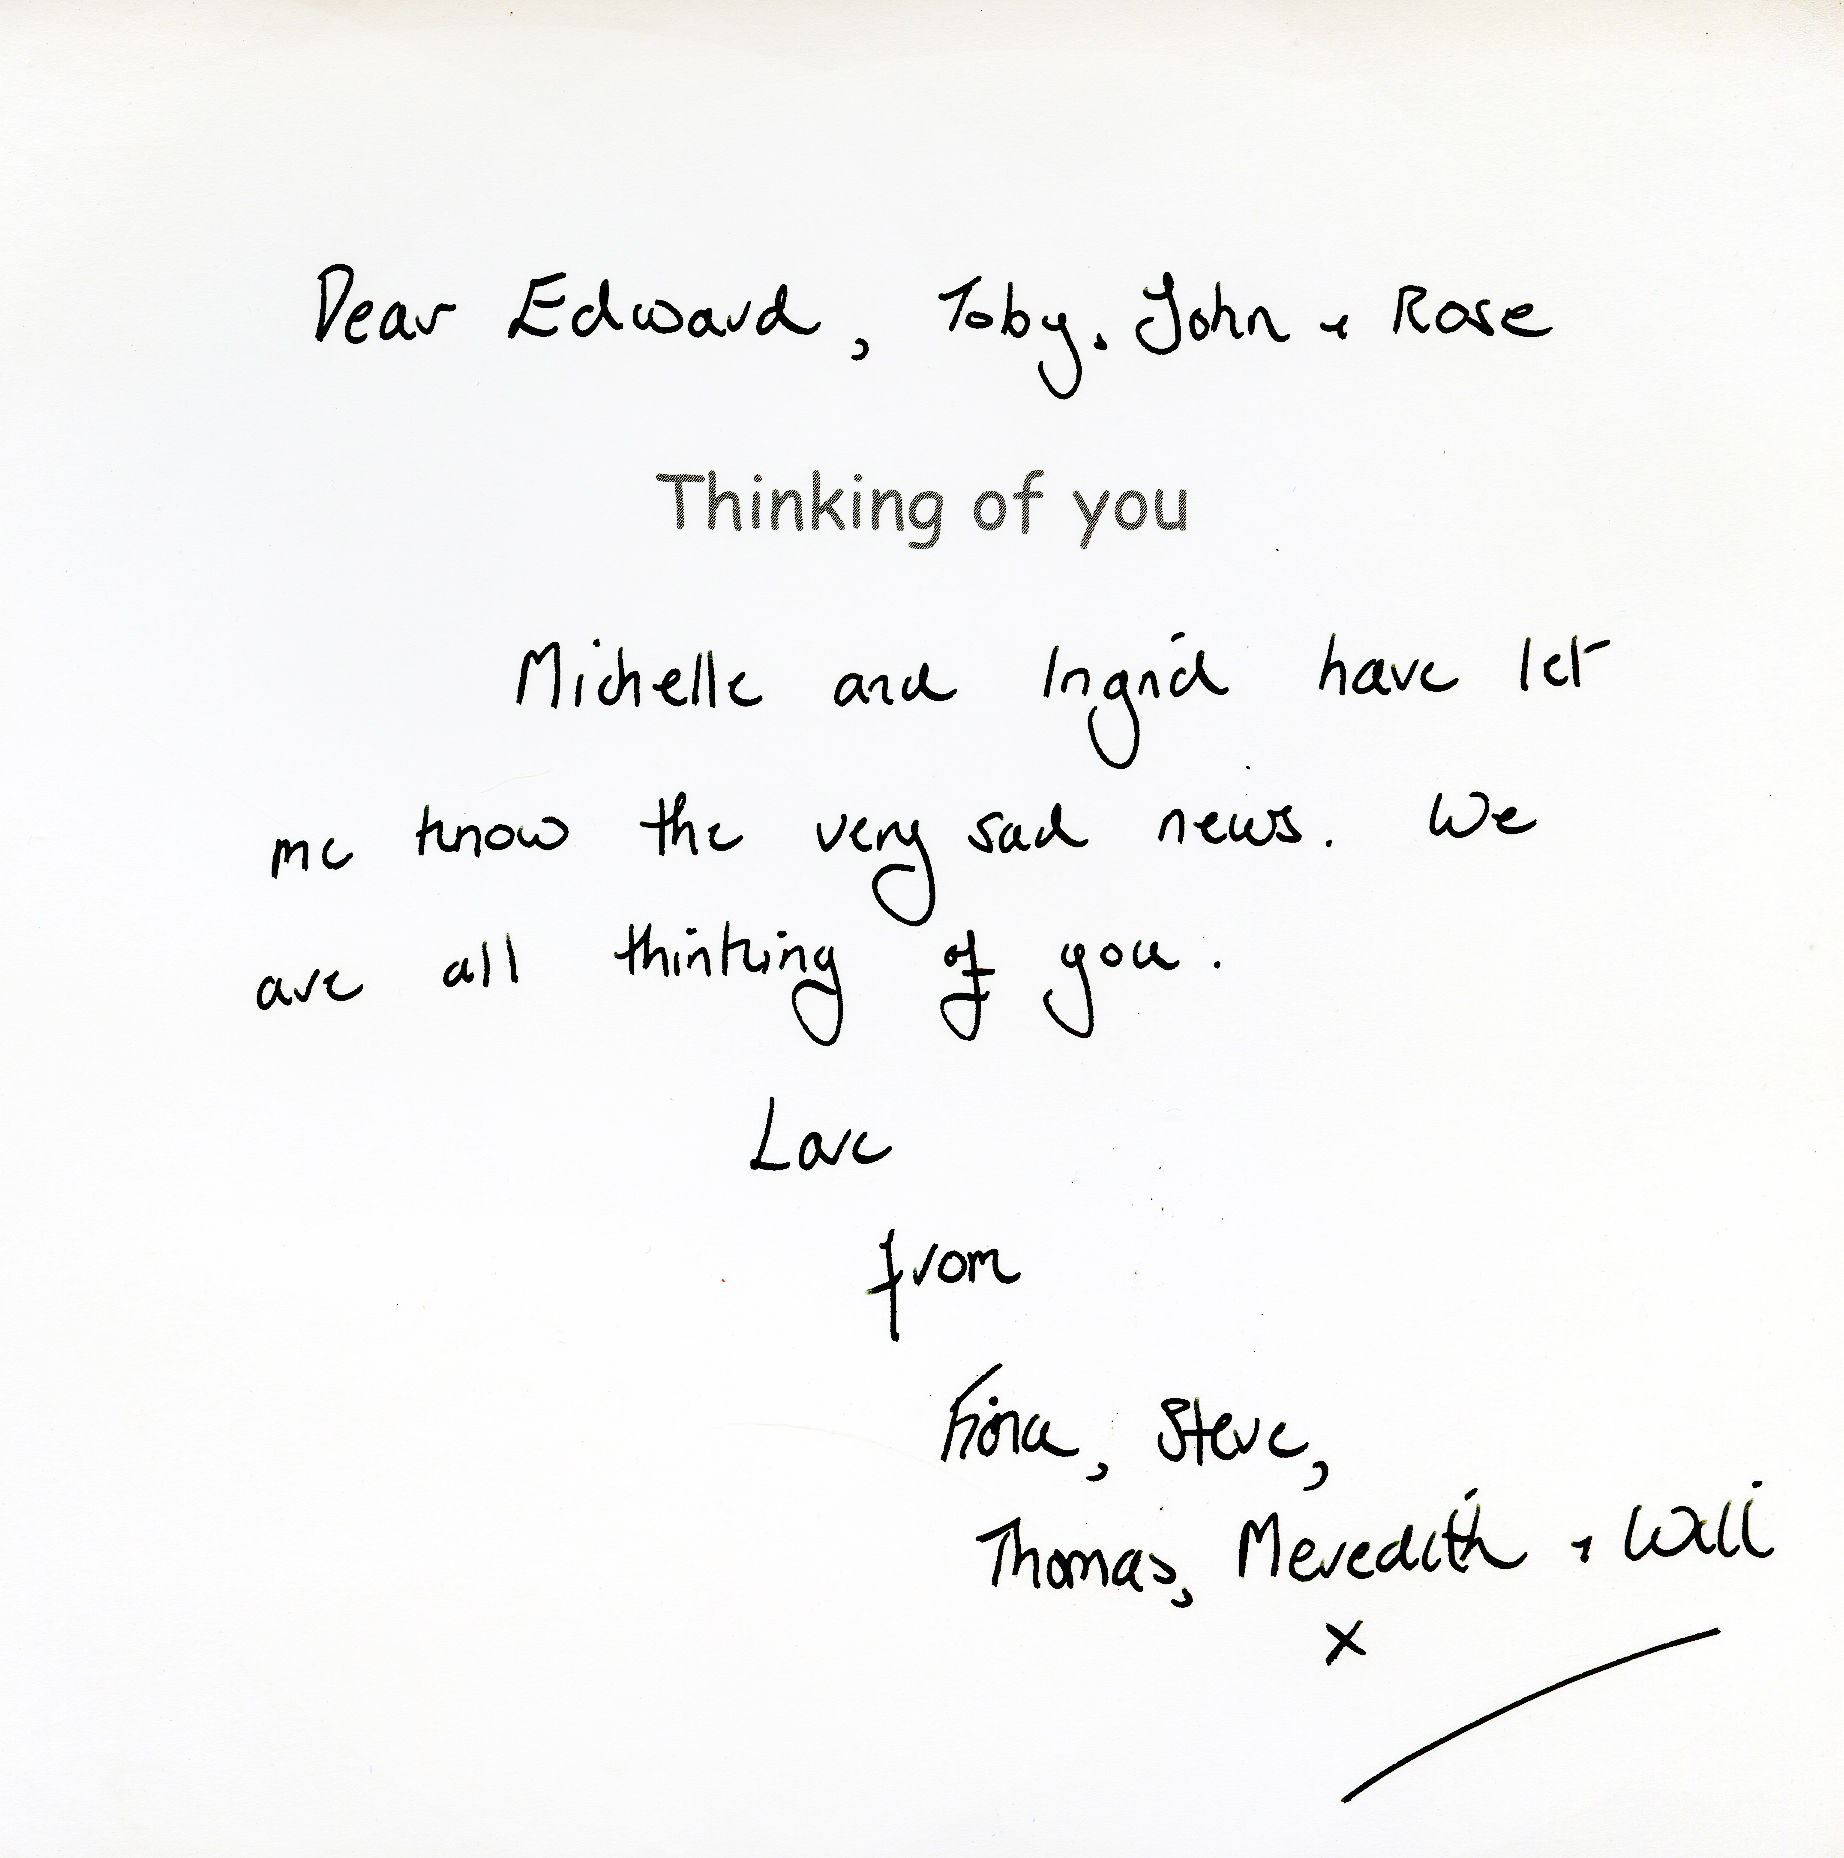 Dear Edward, Toby, John + Rose
Thinking of you
Michelle and Ingrid have let
me know the very sad news. We
are all thinking of you.
Love
from
Fiona, Steve,
Thomas, Meredith + Will
x